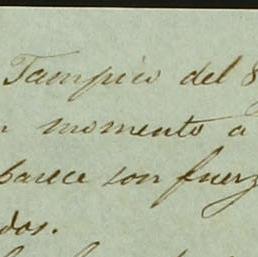 Tampico del 8
momento a
parece son fuerz
dos.